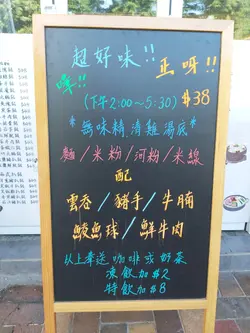 超好味!!
嘩!! 正呀!!
(下午2:00~5:30) $38
*無味精清雞湯底*
麵/米粉/河粉/米線
配
雲吞/豬手/牛腩
鯪魚球/鮮牛肉
以上奉送咖啡或奶茶
凍飲加$2
特飲加$8